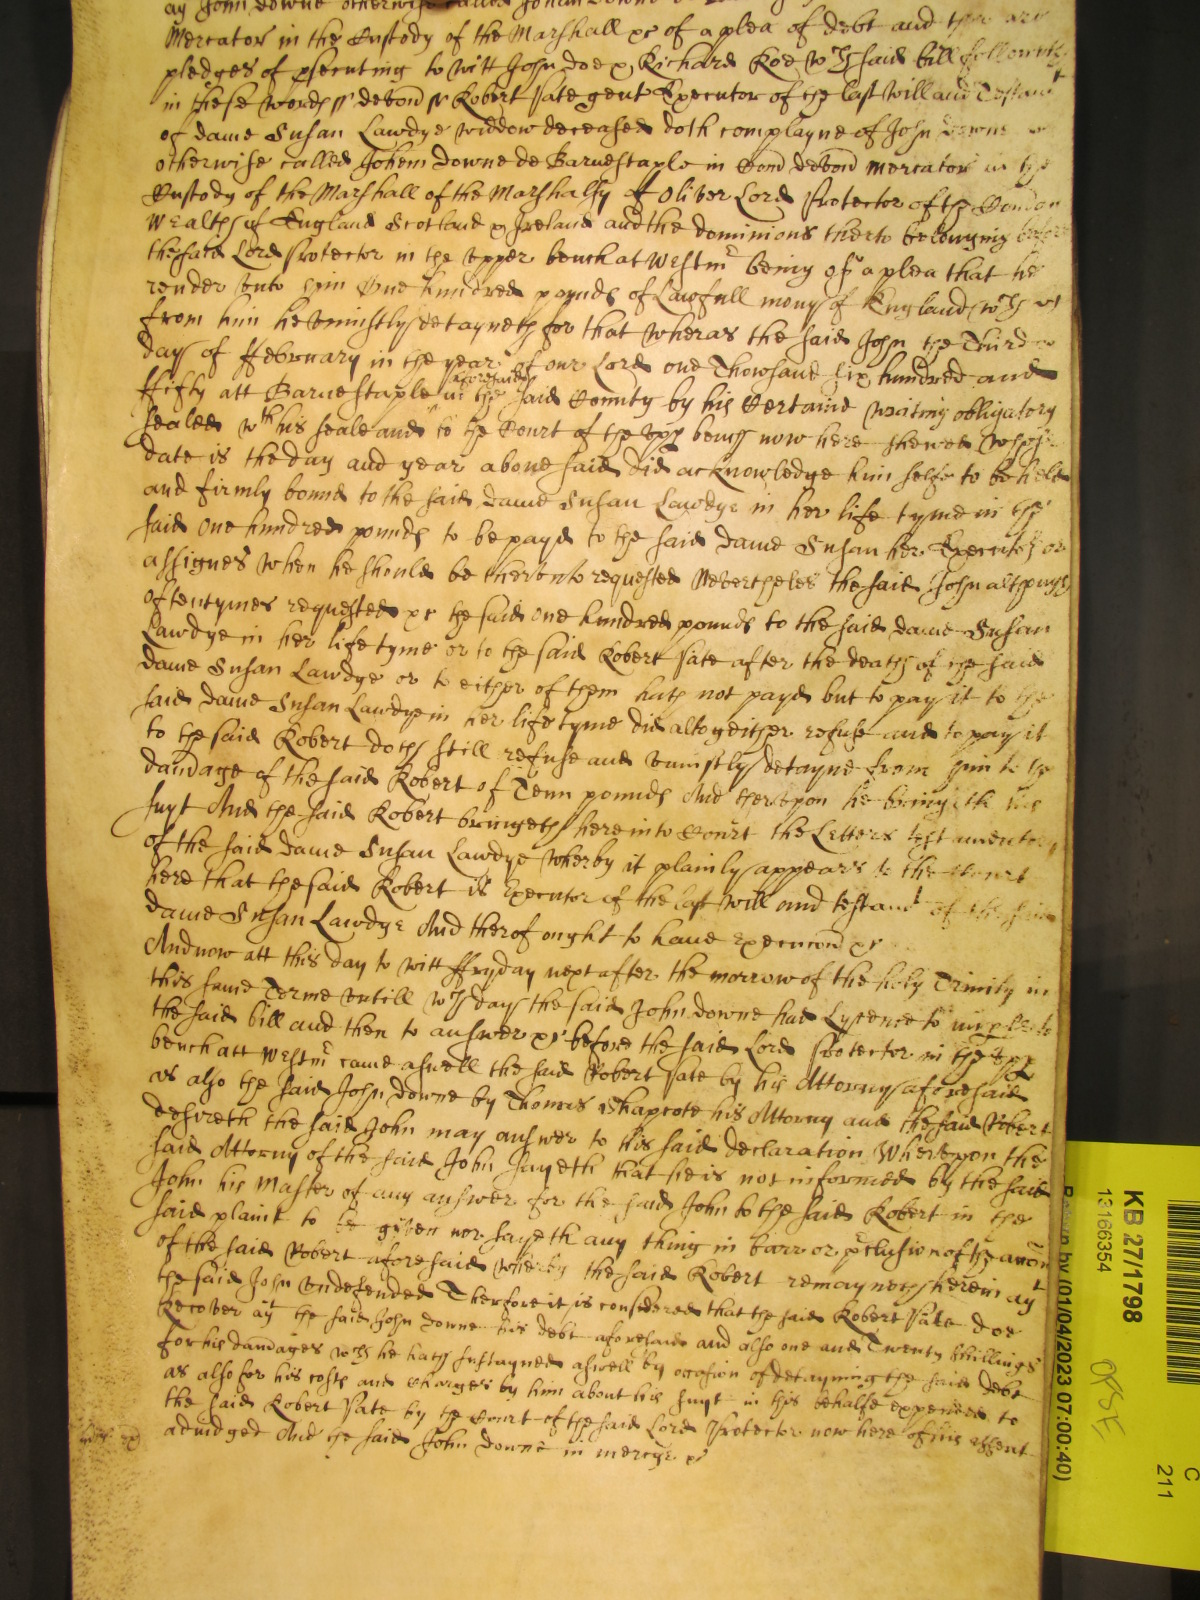 ag John Downe otherwise called Johem Downe de
Mercator in the Custody of the Marshall &c of a plea of debt and there are
pledges of psecuting to witt John Doe & Richard Roe wch said bill followeth
in these words ss devon ss Robert Pate gent Executor of the last will and Testamt
of dame Susan Lawdye widdow deceased doth complayne of John Downe
otherwise called Johem Downe de Barnestaple in Com devon mercator in the
Custody of the Marshall of the Marshalsy of Oliver Lord Protector of the Comon
Wealth of England Scotland & Ireland and the dominions therto belonging before
the said Lord Protector in the upper bench at Westmr being of a plea that he
render unto him One hundred pounds of Lawfull mony of England wch
from him he uniustly detayneth for that wheras the said John the Third
day of ffebruary in the year of our Lord one Thowsand six hundred and
ffifty att Barnestaple aforesaid in the said County by his Certaine writing obligatory
sealed wth his seale and to the Court of the upp bench now here shewed whose
date is the day and year above said did acknowledge him selfe to be held
and firmly bound to the said dame Susan Lawdye in her life tyme in the
said one hundred pounds to be payd to the said dame Susan her Executors or
assignes when he should be therunto requested Nevertheles the said John although
oftentymes requested &c the said one hundred pounds to the said dame Susan
Lawdye in her life tyme or to the said Robert Pate after the death of the said
dame Susan Lawdye or to either of them hath not payd but to pay it to the
said dame Susan Lawdye in her life tyme did altogeither refuse and to pay it
to the said Robert doth still refuse and uniustly detayne from him to the
damage of the said Robert of Tenn pounds And therupon he bringeth his
suyt And the said Robert bringeth here into Court the Letters testamentory
of the said dame Susan Lawdye wherby it plainly appears to the Court
here that the said Robert is Executor of the last will and testamt of the said
dame Susan Lawdye And therof ought to have execucon &c
And now att this day to witt ffryday next after the morrow of the holy Trinity in
this same Terme untill wch day the said John Downe had Lycence to imparle to
the said bill and then to answer &c before the said Lord Protector in the upp
bench att Westmr came aswell the said Robert Pate by his Attorny aforesaid
as also the said John Downe by Thomas Shapcote his Attorny and the said Robert
desireth the said John may answer to his said declaration Wherupon the
said Attorny of the said John sayeth that he is not informed by the said
John his Master of any answer for the said John to the said Robert in the
said plaint to be given nor sayeth any thing in barr or preclusion of the accon
of the said Robert aforesaid wherby the said Robert remayneth herein agt
the said John undefended Therfore it is considered that the said Robert Pate doe
Recover agt the said John Downe his debt aforesaid and also one and Twenty Shillings
for his damages wch he hath sustayned aswell by occasion of detayning the said debt
as also for his costs and Charges by him about his suyt in this behalfe expended to
the said Robert Pate by the Court of the said Lord Protector now here of his assent
adiudged And the said John Downe in mercye &c
KB 27/1798
13166354
by (01/04/2023 07:00:40)
C
211